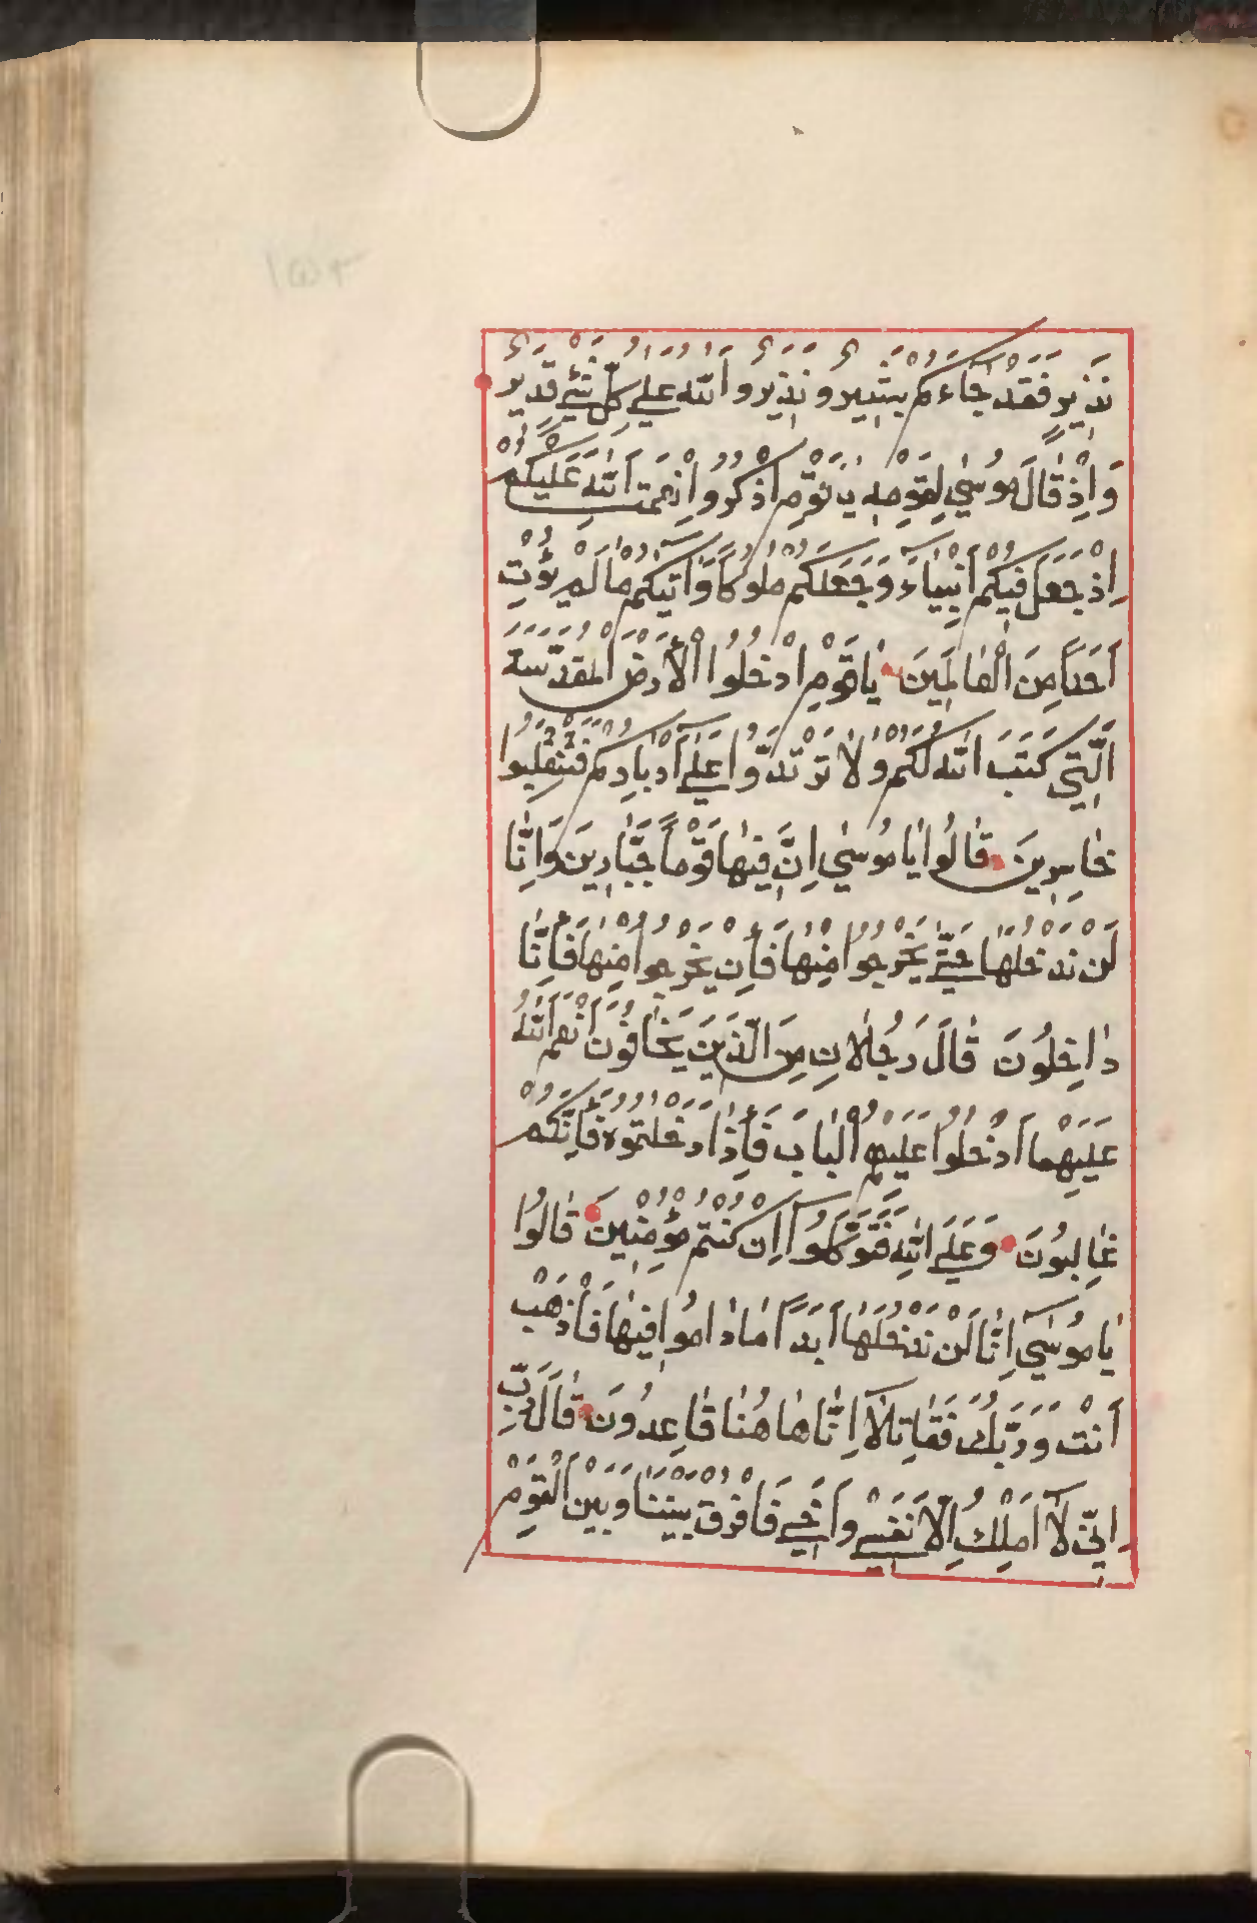 نَذِيرٍ فَقَدْ جَاءَكُمْ بَشِيرٌ وَنَذِيرٌ وَاللَّهُ عَلَى كُلِّ شَيْءٍ قَدِيرٌ
وَإِذْ قَالَ مُوسَى لِقَوْمِهِ يَا قَوْمِ اذْكُرُوا نِعْمَتَ اللَّهِ عَلَيْكُمْ
إِذْ جَعَلَ فِيكُمْ أَنْبِيَاءَ وَجَعَلَكُمْ مُلُوكًا وَآتَيكُمْ مَا لَمْ يُؤْتِ
أَحَدًا مِنَ الْعَالَمِينَ يَا قَوْمِ ادْخُلُوا الْأَرْضَ الْمُقَدَّسَةَ
الَّتِي كَتَبَ اللَّهُ لَكُمْ وَلَا تَرْتَدُّوا عَلَى أَدْبَارِكُمْ فَتَنْقَلِبُوا
خَاسِرِينَ قَالُوا يَا مُوسَى إِنَّ فِيهَا قَوْمًا جَبَّارِينَ وَإِنَّا
لَنْ نَدْخُلَهَا حَتَّى يَخْرُجُوا مِنْهَا فَإِنْ يَخْرُجُوا مِنْهَا فَإِنَّا
دَاخِلُونَ قَالَ رَجُلَانِ مِنَ الَّذِينَ يَخَافُونَ أَنْعَمَ اللَّهُ
عَلَيْهِمَا ادْخُلُوا عَلَيْهِمُ الْبَابَ فَإِذَا دَخَلْتُمُوهُ فَإِنَّكُمْ
غَالِبُونَ وَعَلَى اللَّهِ فَتَوَكَّلُوا إِنْ كُنْتُمْ مُؤْمِنِينَ قَالُوا
يَا مُوسَى إِنَّا لَنْ نَدْخُلَهَا أَبَدًا مَا دَامُوا فِيهَا فَاذْهَبْ
أَنْتَ وَرَبُّكَ فَقَاتِلَا إِنَّا هَاهُنَا قَاعِدُونَ قَالَ رَبِّ
إِنِّي لَا أَمْلِكُ إِلَّا نَفْسِي وَأَخِي فَافْرُقْ بَيْنَنَا وَبَيْنَ الْقَوْمِ